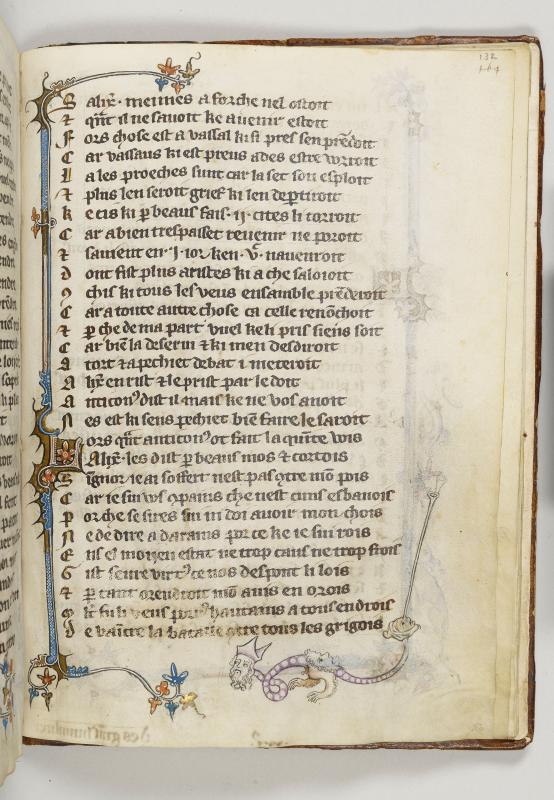 132
164
S alix̄. meimes a force nel ostoit
⁊ qūt il ne savoit ke avenir estoit
F ors chose est a vassal kist pres sen prēdoit
C ar vassaus ki est preus ades estre vorroit
U a les proeches sunt car la set son esploit
⁊ plus len seroit grief ki len dep̄tiroit
k e cis ki p̄ beaus fais .ij. cites li torroit
C ar a bien trespasset revenir ne poroit
⁊ savient en .j. ior ken .v. navenroit
D ont fist plus aristes ki a che saloioit
chis ki tous les veus ensamble prēderoit
C ar a toute autre chose ca celle renōchoit
⁊ p̄ che de ma part vuel ke li pris siens soit
C ar biē la deservi ⁊ ki men desdiroit
A tort ⁊ a pechiet debat i meteroit
A lix̄ en rist ⁊ le prist par le doit
A nticon⁹ dist il mais ke ne vos anoit
N es est ki sens pechiet biē faire le saroit
L ors qūt anticon⁹ ot fait la quīte vois
Alix̄. les dist p̄ beaus mos ⁊ cortois
S ignor ie ai soffert nest pas ꝯtre mō pois
C ar ie sui vos ꝯpains che nest cuns esbanois
P or che se sires sui ni doi avoir mon chois
N e de dire a darains por ce ke ie sui rois
E ns el moien estat ne trop caus ne trop frois
G ist seure virt⁹ ce nos despont li lois
⁊ p̄ tant orendroit mō avis en orois
veus hautains a tous endrois
D e vaītre la bataile ꝯtre tous les grigois